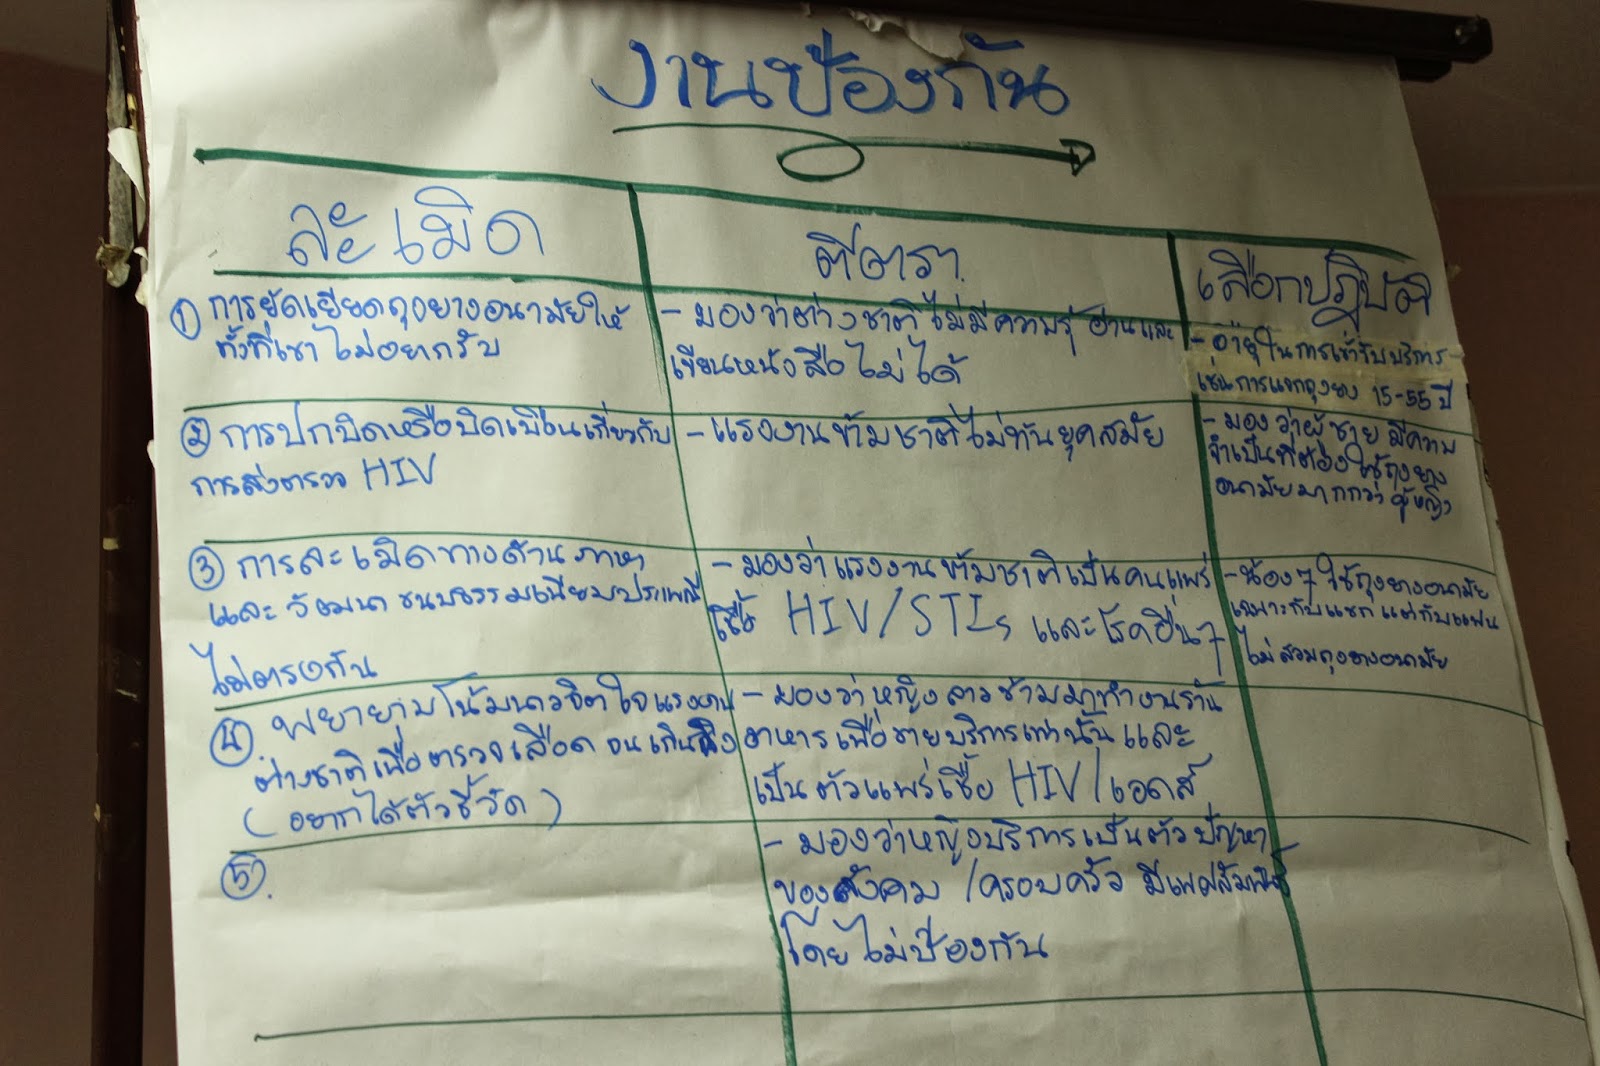 งานป้องกัน
ละเมิด
ตีตรา
เลือกปฏิบัติ
① การยัดเยียดถุงยางอนามัยให้
ทั้งที่เขาไม่อยากรับ
② การปกปิดหรือบิดเบือนเกี่ยวกับ
การส่งตรวจ HIV
③ การละเมิดทางด้านภาษา
และ วัฒนา ขนบธรรมเนียมประเพณี
ไม่ตรงกัน
④ พยายามโน้มนาวจิตใจแรงงาน
ต่างชาติเพื่อตรวจเลือด จนเกิน
(อยากได้ตัวชี้วัด)
⑤
- มองว่าต่างชาติไม่มีความรู้ อ่านและ
เขียนหนังสือไม่ได้
- แรงงานข้ามชาติไม่ทันยุคสมัย
- มองว่าแรงงานข้ามชาติเป็นคนแพร่
เชื้อ HIV/STIs และโรคอื่นๆ
- มองว่าหญิงลาวข้ามมาทำงานร้าน
อาหารเพื่อขายบริการเท่านั้นและ
เป็นตัวแพร่เชื้อ HIV/เอดส์
- มองว่าหญิงบริการเป็นตัวปัญหา
ของสังคม/ครอบครัว มีเพศสัมพันธ์
โดยไม่ป้องกัน
- อายุในการเข้ารับบริการ
เช่นการแจกถุงยาง 15-55 ปี
- มองว่าผู้ชายมีความ
จำเป็นที่ต้องใช้ถุงยาง
อนามัยมากกว่าผู้หญิง
- น้องๆ ใช้ถุงยางอนามัย
เฉพาะกับแขก แต่กับแฟน
ไม่สวมถุงยางอนามัย